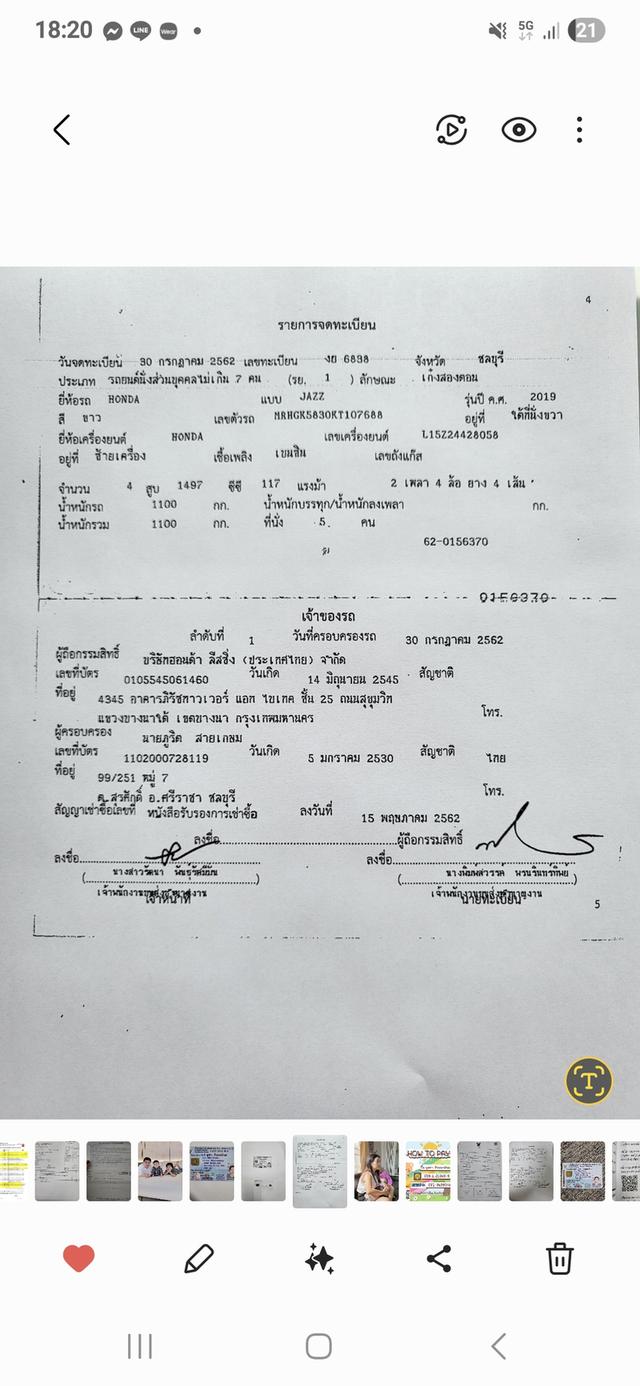 18:20
LINE
Wear
5G
21
4
รายการจดทะเบียน
วันจดทะเบียน 30 กรกฎาคม 2562 เลขทะเบียน งย 6838 จังหวัด ชลบุรี
ประเภท รถยนต์นั่งส่วนบุคคลไม่เกิน 7 คน (รย. 1 ) ลักษณะ เก๋งสองตอน
ยี่ห้อรถ HONDA แบบ JAZZ รุ่นปี ค.ศ. 2019
สี ขาว เลขตัวรถ MRHGK5830KT107688 อยู่ที่ ใต้ที่นั่งขวา
ยี่ห้อเครื่องยนต์ HONDA เลขเครื่องยนต์ L15Z24428058
อยู่ที่ ซ้ายเครื่อง เชื้อเพลิง เบนซิน เลขถังแก๊ส
จำนวน 4 สูบ 1497 ซีซี 117 แรงม้า 2 เพลา 4 ล้อ ยาง 4 เส้น
น้ำหนักรถ 1100 กก. น้ำหนักบรรทุก/น้ำหนักลงเพลา กก.
น้ำหนักรวม 1100 กก. ที่นั่ง 5 คน
62-0156370
0156370
เจ้าของรถ
ลำดับที่ 1 วันที่ครอบครองรถ 30 กรกฎาคม 2562
ผู้ถือกรรมสิทธิ์ บริษัทฮอนด้า ลีสซิ่ง (ประเทศไทย) จำกัด
เลขที่บัตร 0105545061460 วันเกิด 14 มิถุนายน 2545 สัญชาติ
ที่อยู่ 4345 อาคารภิรัชทาวเวอร์ แอท ไบเทค ชั้น 25 ถนนสุขุมวิท
แขวงบางนาใต้ เขตบางนา กรุงเทพมหานคร โทร.
ผู้ครอบครอง นายภูริต สายเกษม
เลขที่บัตร 1102000728119 วันเกิด 5 มกราคม 2530 สัญชาติ ไทย
ที่อยู่ 99/251 หมู่ 7
ต.สุรศักดิ์ อ.ศรีราชา ชลบุรี โทร.
สัญญาเช่าซื้อเลขที่ หนังสือรับรองการเช่าซื้อ ลงวันที่ 15 พฤษภาคม 2562
ลงชื่อ ผู้ถือกรรมสิทธิ์
ลงชื่อ ลงชื่อ
เจ้าหน้าที่ นายทะเบียน
5
T
HOW TO PAY